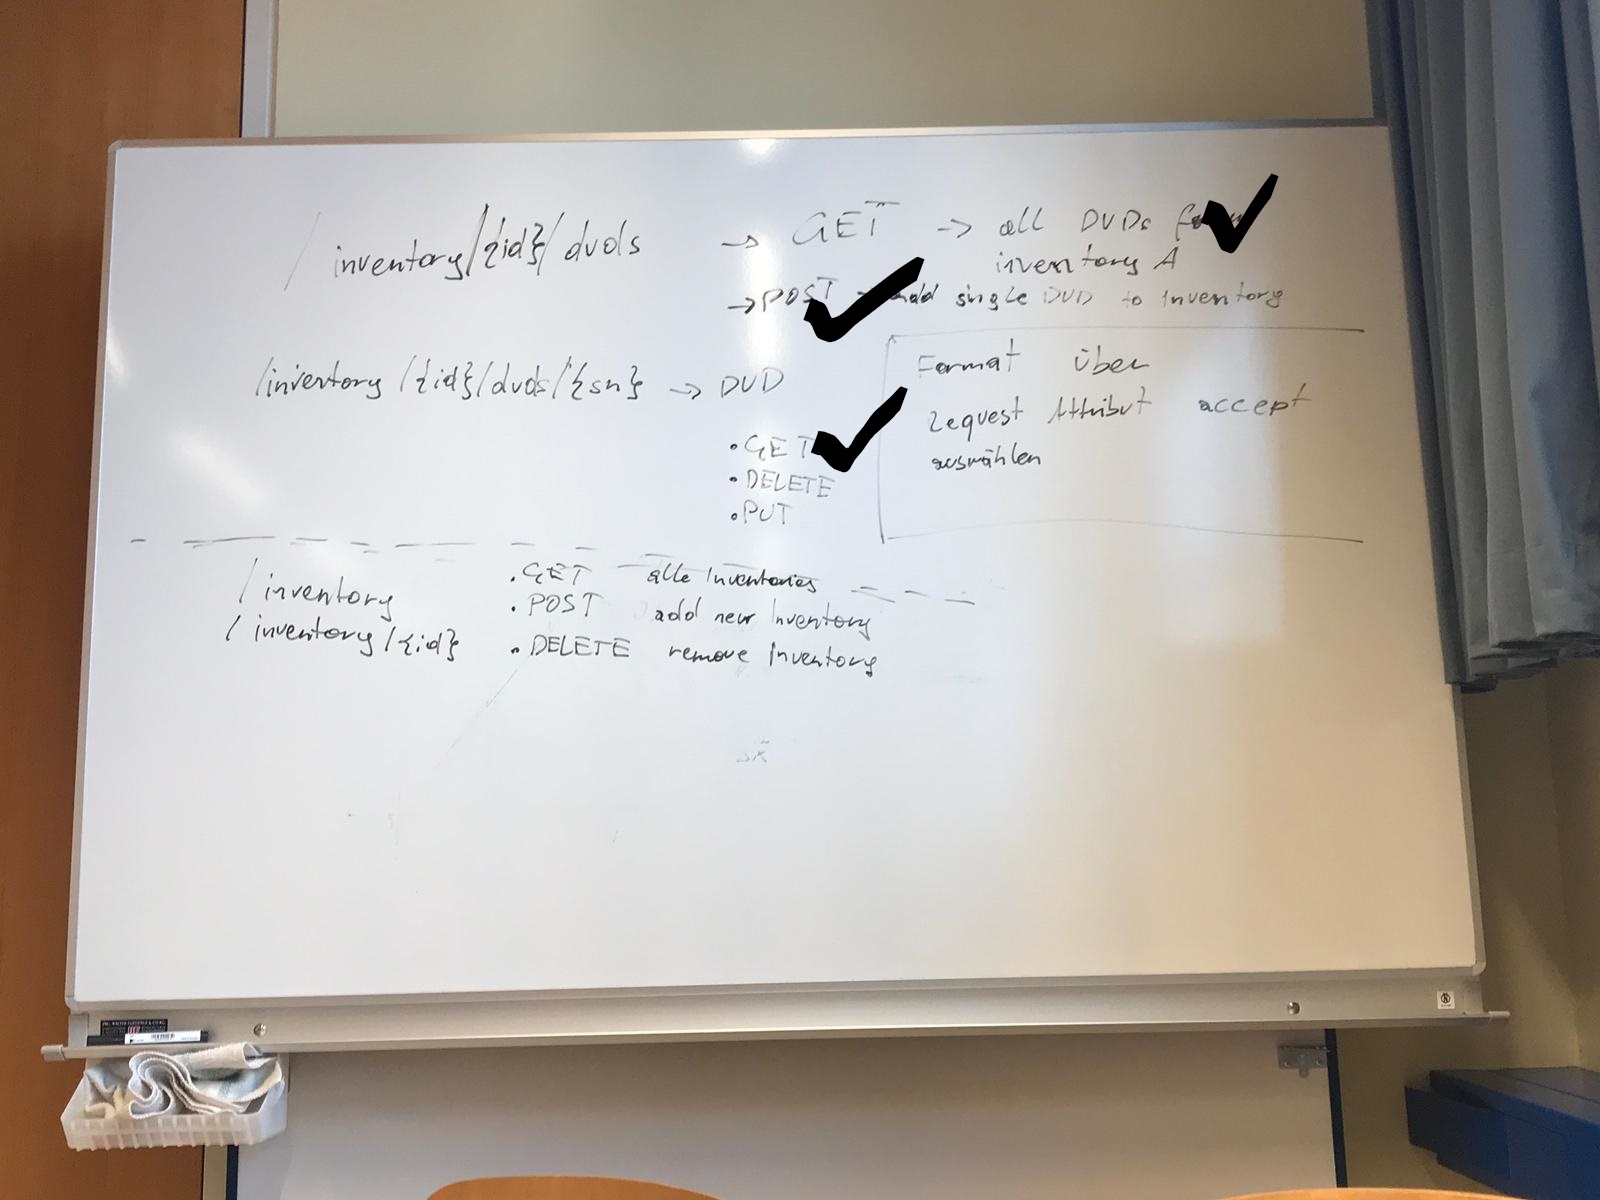 /inventory/{id}/dvds → GET → all DVDs
inventory A
→ POST → add single DVD to Inventory
/inventory/{id}/dvds/{sn} → DVD
• GET
• DELETE
• PUT
Format über
Request Attribut accept
auswählen
/inventory • GET alle Inventories
• POST add new Inventory
/inventory/{id} • DELETE remove Inventory